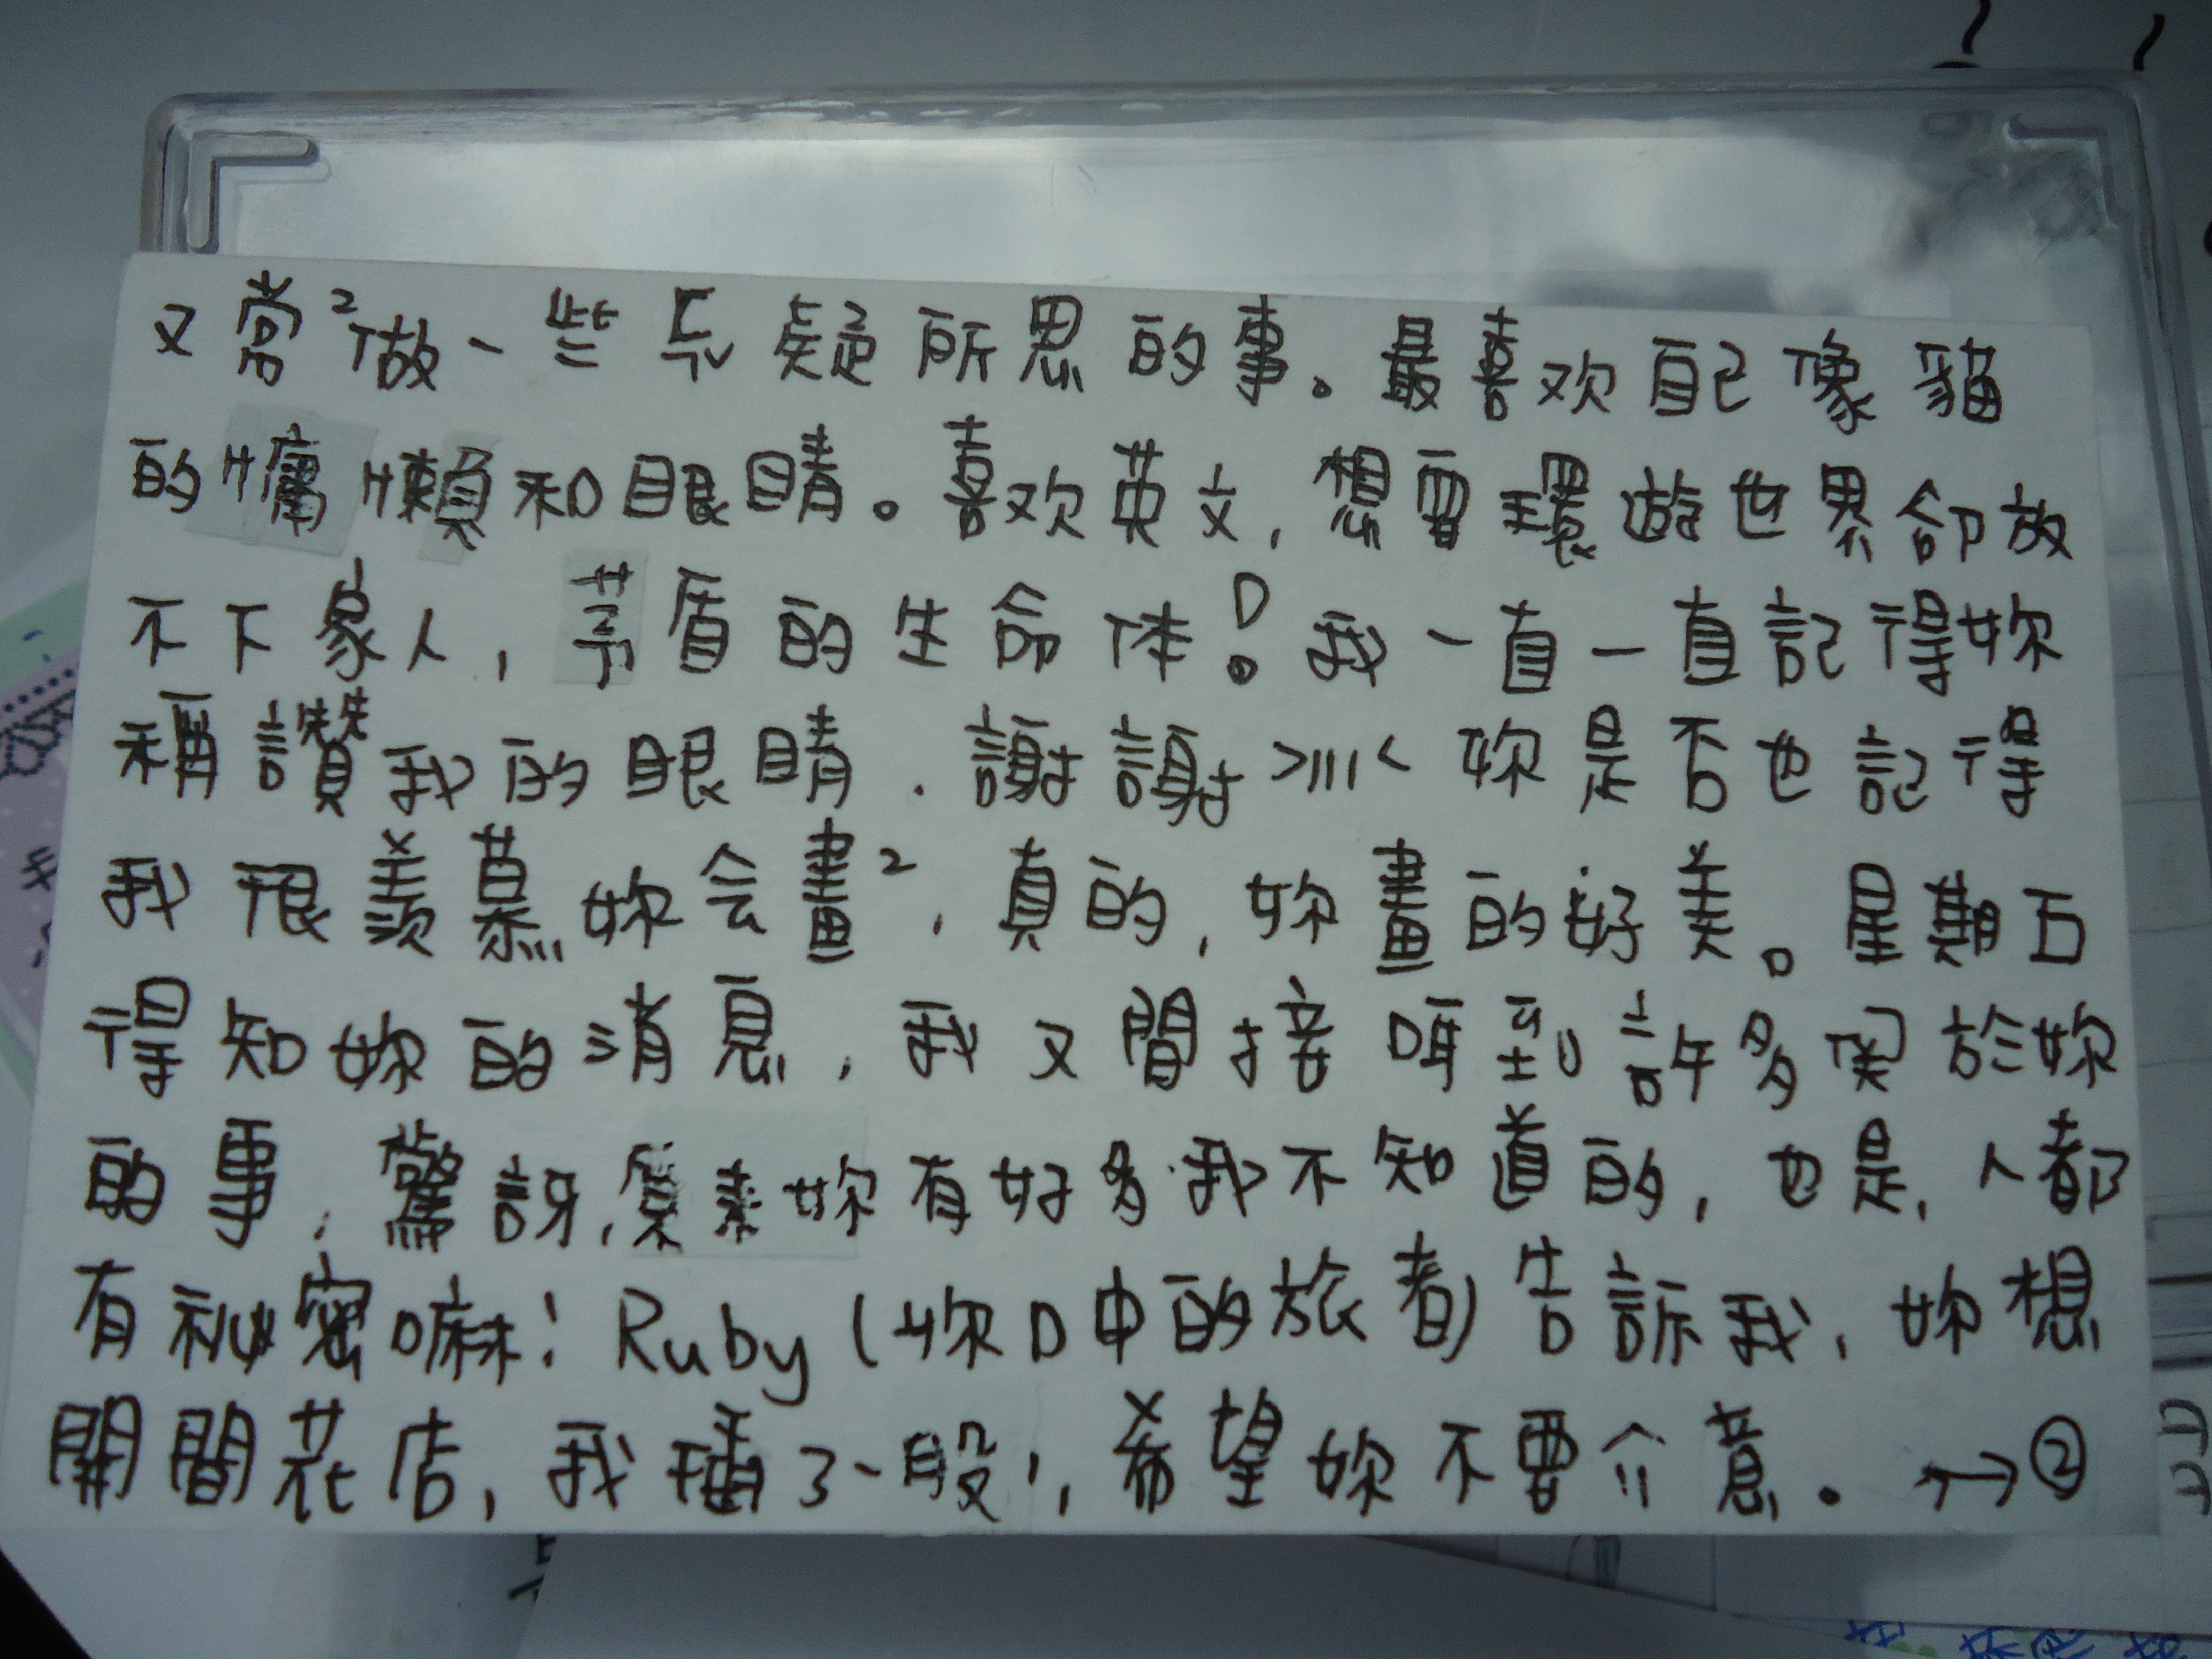 又常²做一些匪疑所思的事。最喜欢自己像貓
的慵懶和眼睛。喜欢英文,想要環遊世界卻放
不下家人,茅盾的生命体!我一直一直記得妳
稱讚我的眼睛.謝謝>///<妳是否也記得
我很羨慕妳会畫²,真的,妳畫的好美。星期五
得知妳的消息,我又間接得到許多関於妳
的事,驚訝,妳有好多我不知道的,也是,人都
有祕密嘛!Ruby(妳口中的旅者)告訴我,妳想
開間花店,我插了一段,希望妳不要介意。→②